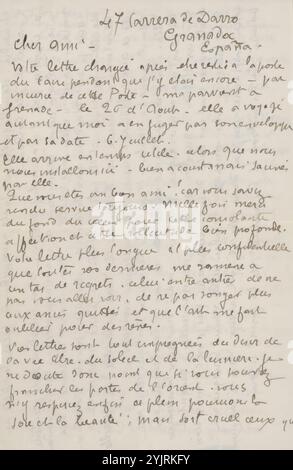 47 Carrera de Darro
Granada
España.
Cher ami -
Votre lettre chargée après être restée à la poste
du Caire pendant que j'y étais encore - par
incurie de cette Poste - me parvient à
Grenade - le 26 d'Août. elle a voyagé
autant que moi à en juger par son enveloppe
et par sa date - 6 Juillet.
Elle arrive en temps utile, alors que nous
nous installons ici - bien à court mais sauvés
par elle.
Que vous êtes un bon ami! car vous savez
rendre service Mille fois merci
du fond du cœur pour cette consolante
affection et si bien profonde.
Votre lettre plus longue et plus confidentielle
que toutes vos dernières me ramène à
un tas de regrets. celui entre autres de ne
pas vous aller voir, de ne pas songer plus
aux amis quittés et que l'art me fait
oublier pour des rêves.
Vos lettres sont tout imprégnées du désir de
la vie libre, du soleil et de la lumière. je
ne doute donc point que si vous pouviez
franchir les portes de l'orient, vous
n'y respiriez enfin à plein poumons la
joie et la beauté; mais sort cruel ceux qui
alamy
Image ID: 2YJRKFY
www.alamy.com